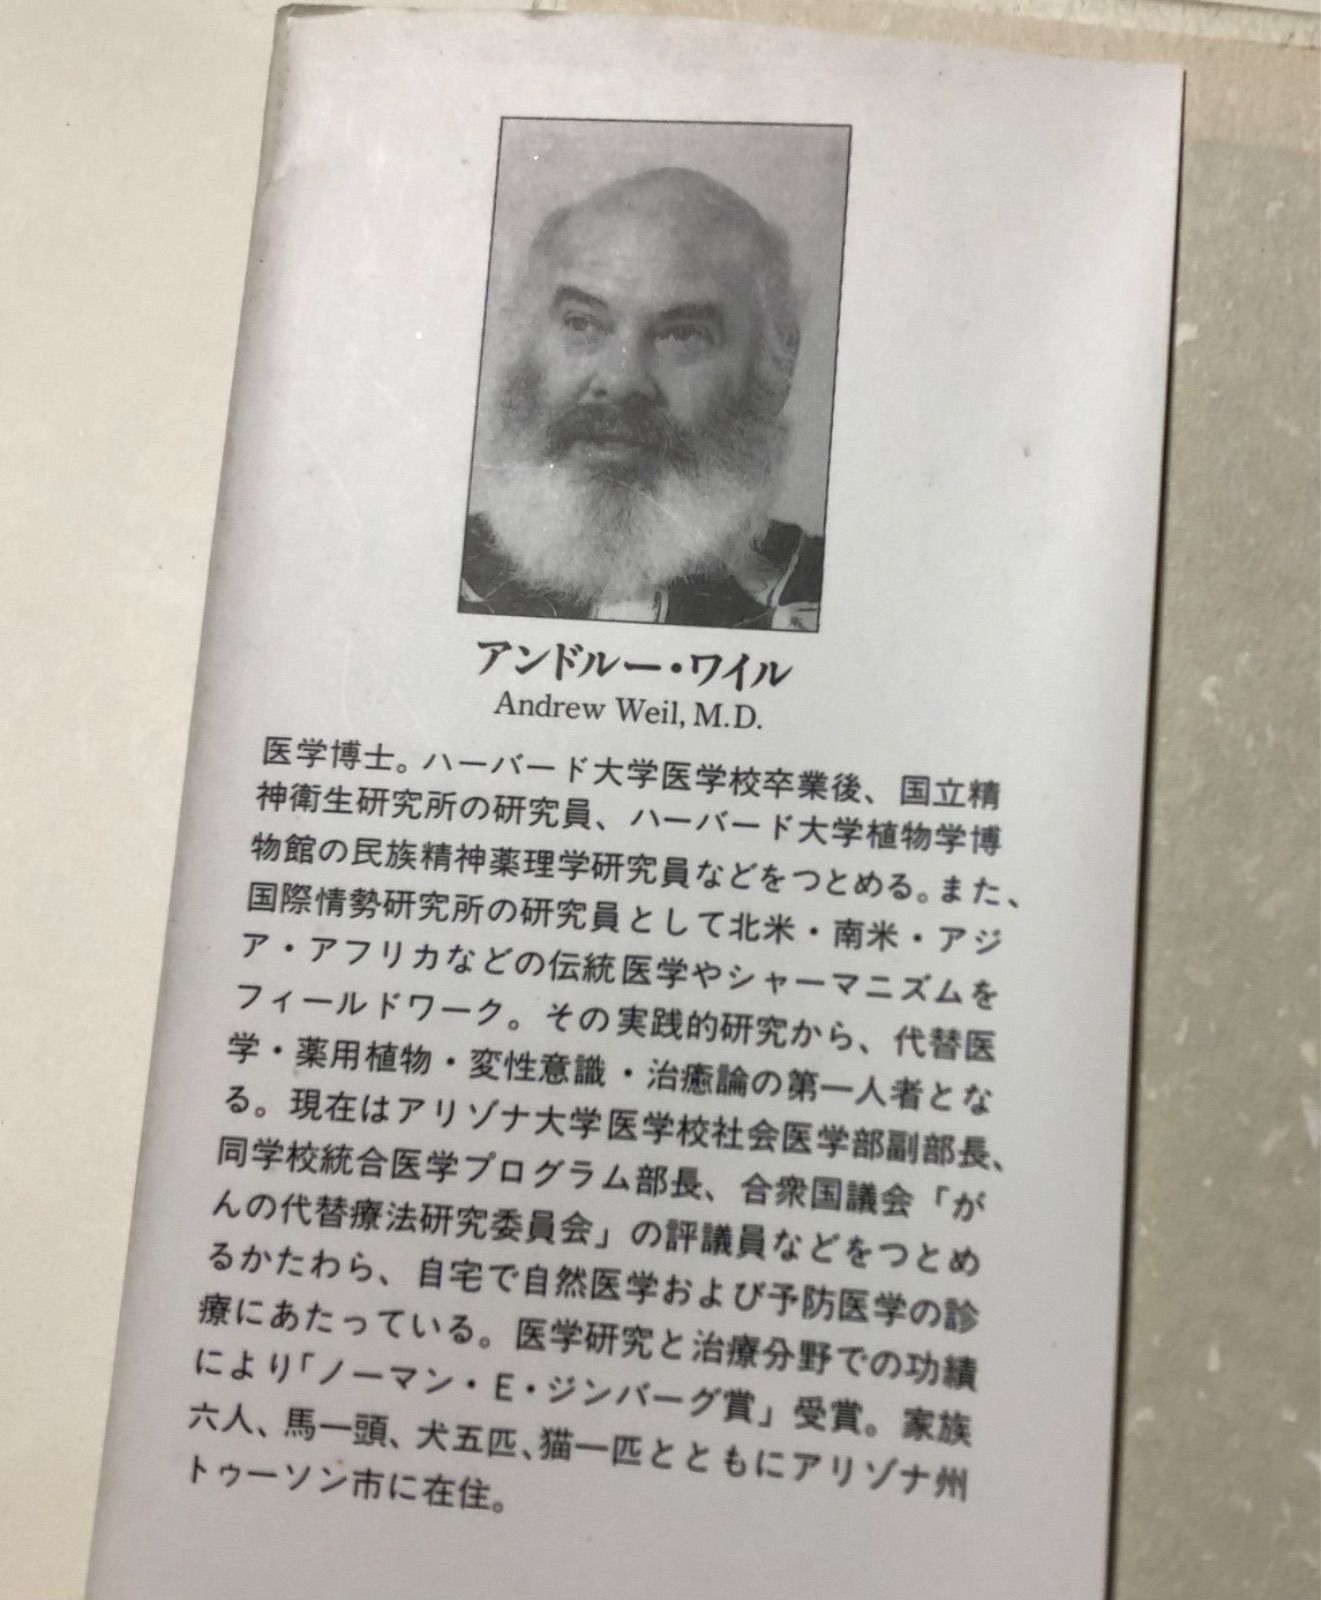 アンドルー・ワイル
Andrew Weil, M.D.
医学博士。ハーバード大学医学校卒業後、国立精
神衛生研究所の研究員、ハーバード大学植物学博
物館の民族精神薬理学研究員などをつとめる。また、
国際情勢研究所の研究員として北米・南米・アジ
ア・アフリカなどの伝統医学やシャーマニズムを
フィールドワーク。その実践的研究から、代替医
学・薬用植物・変性意識・治癒論の第一人者とな
る。現在はアリゾナ大学医学校社会医学部副部長、
同学校統合医学プログラム部長、合衆国議会「が
んの代替療法研究委員会」の評議員などをつとめ
るかたわら、自宅で自然医学および予防医学の診
療にあたっている。医学研究と治療分野での功績
により「ノーマン・E・ジンバーグ賞」受賞。家族
六人、馬一頭、犬五匹、猫一匹とともにアリゾナ州
トゥーソン市に在住。